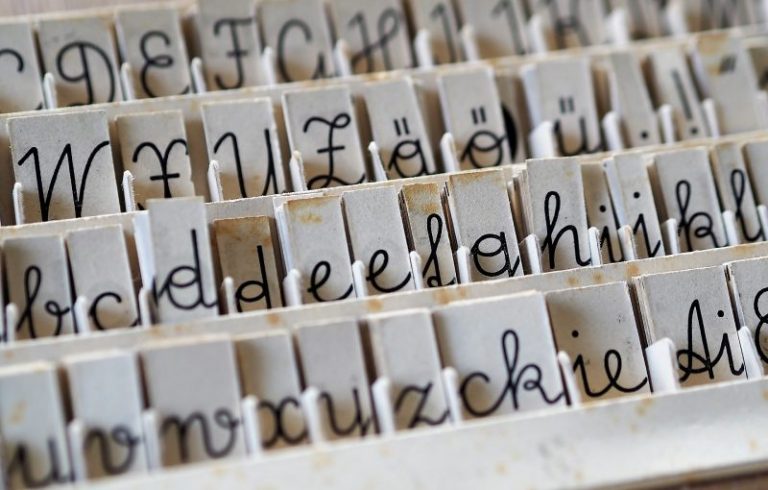 C D E F G H I
W X Y Z ä ö ü !
b c d d e e f g h i j k l
u v w x y z ck ie Ai